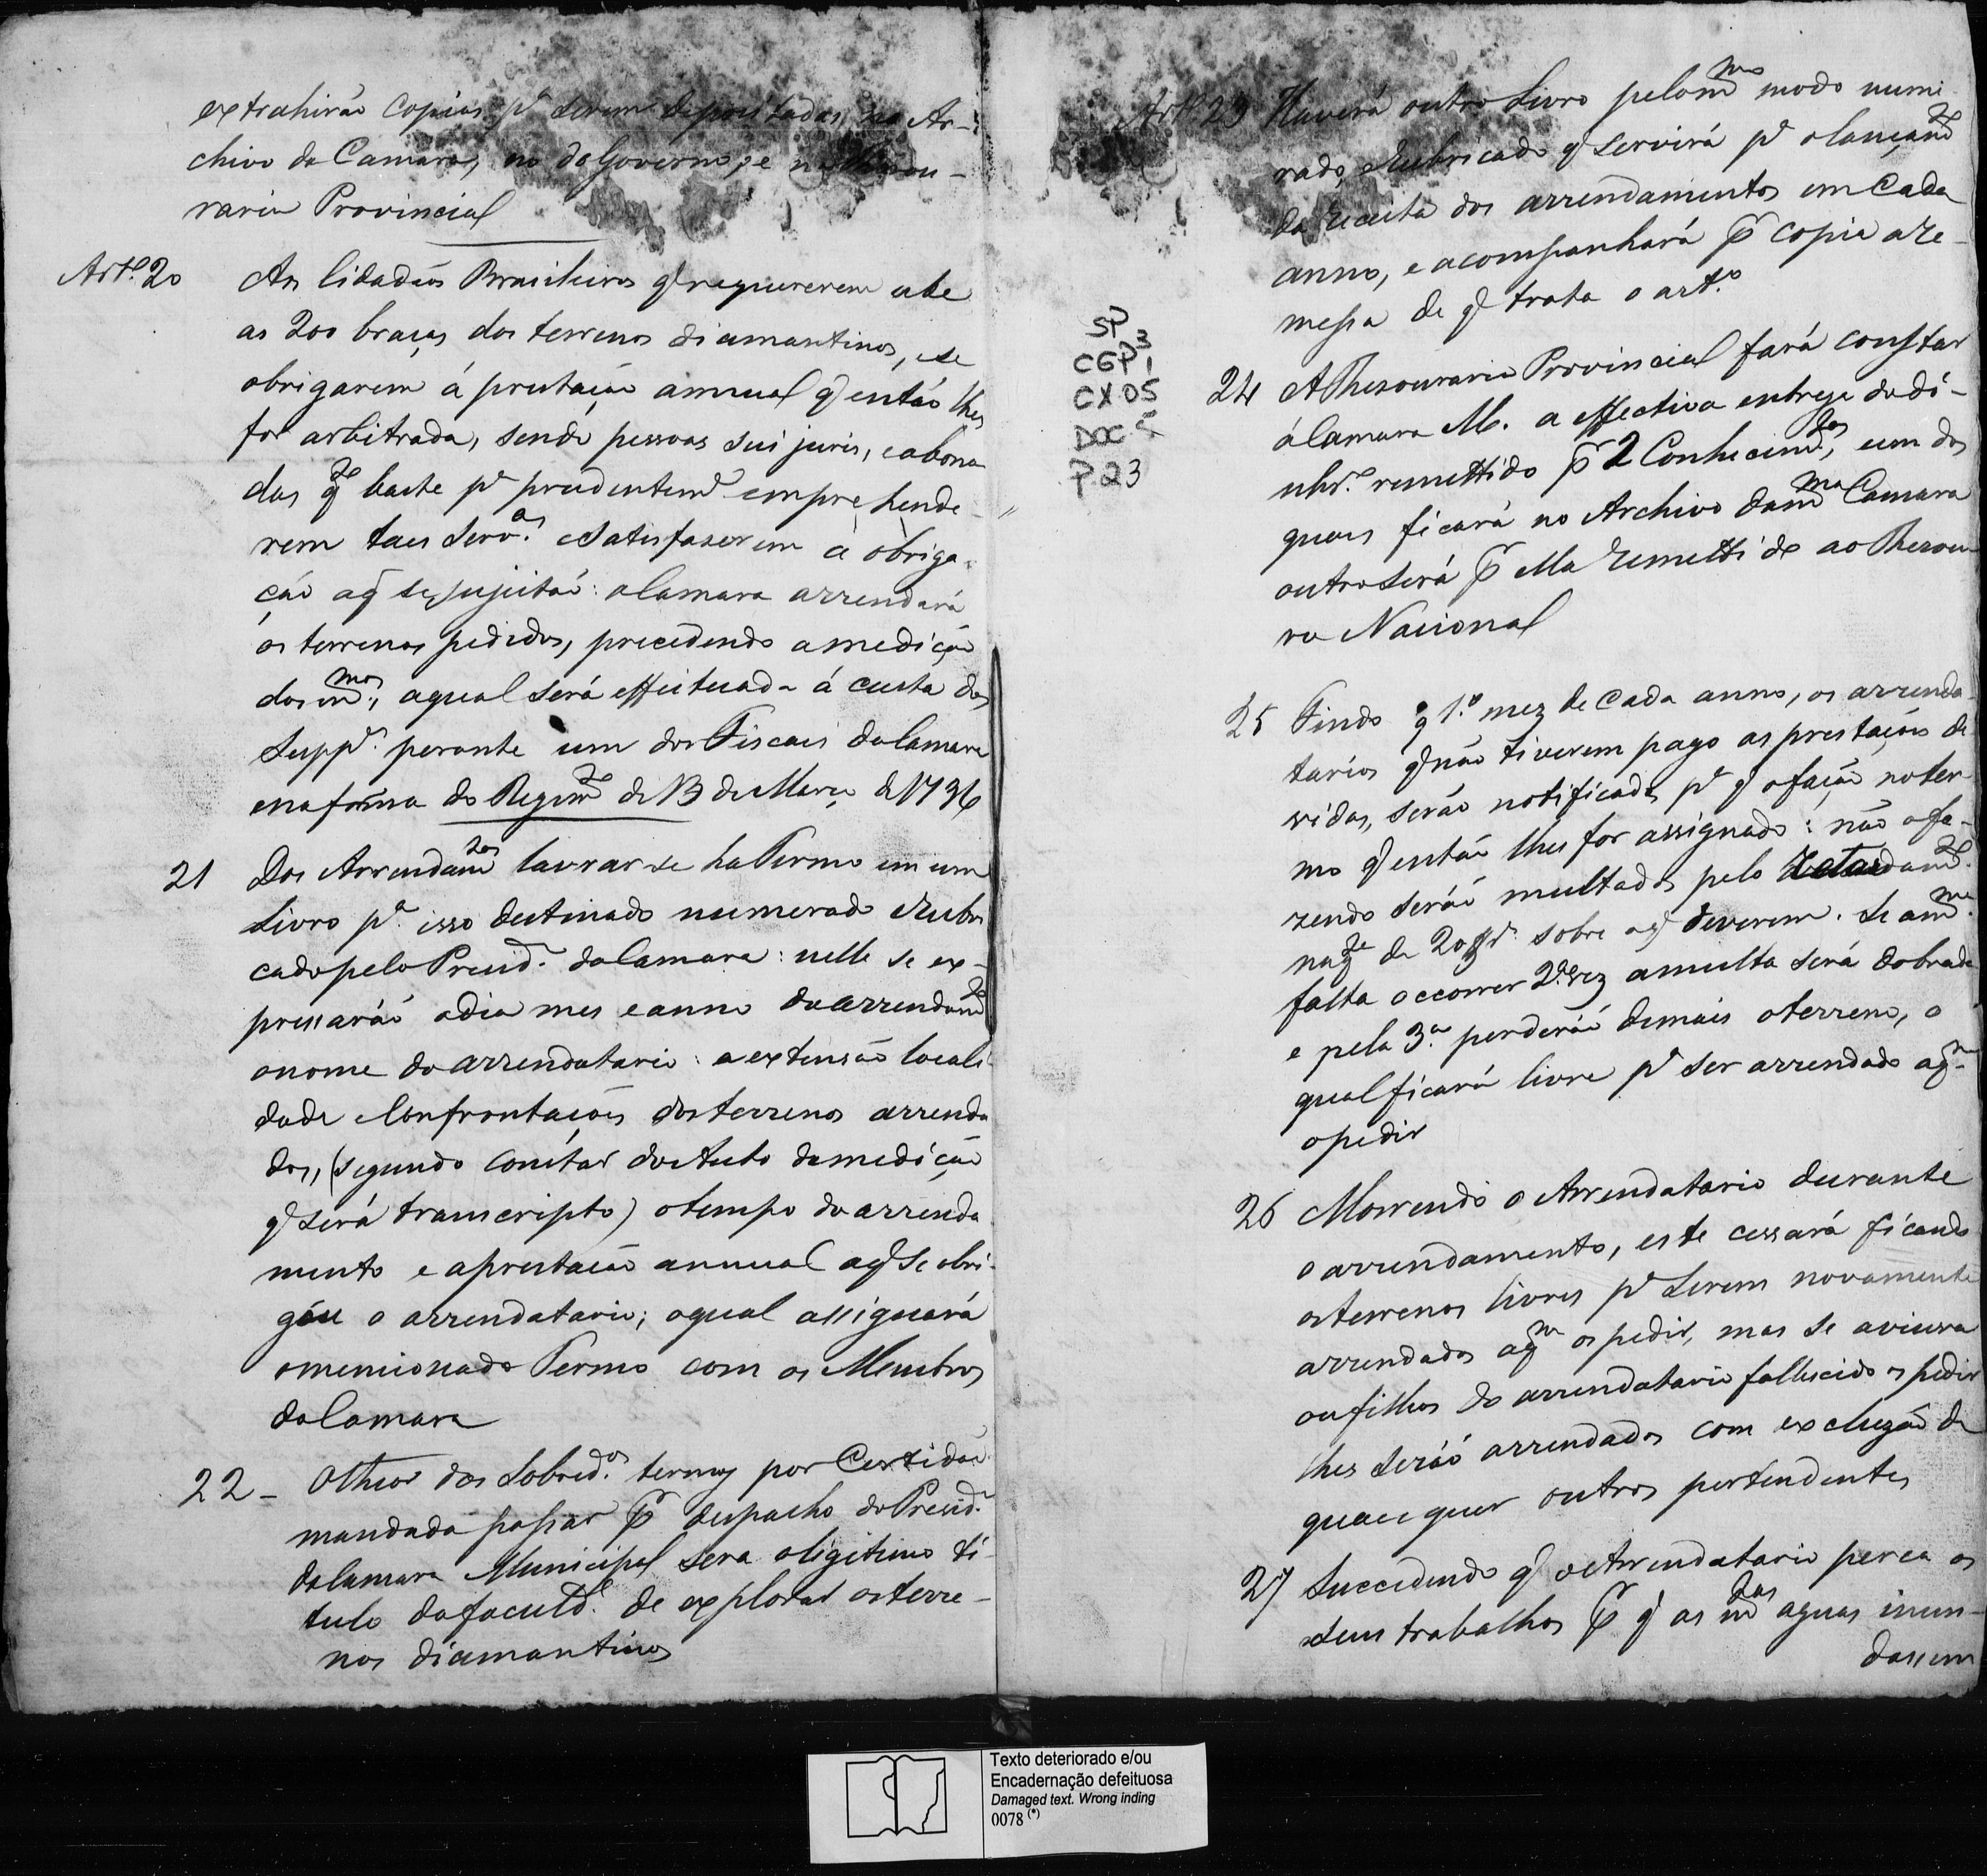 extrahirão copias pª serem depositadas no Ar-
chivo da Camara, no do Governo, e na Thesou-
raria Provincial
Artº 20 Aos Cidadãos Brasileiros q requererem athe
as 200 braças dos terrenos diamantinos, e se
obrigarem á prestação annual q então lhes
for arbitrada, sendo pessoas sui juris, e abona
das q.te baste pª prudentemte emprehende-
rem taes servos e satisfazerem a obriga-
ção aq se sujeitão: a Camara arrendará
os terrenos pedidos, precedendo a medição
dos mmos, aqual será effeituada á custa dos
Suppes perante um dos Fiscais da Camara
e na forma do Regimto de 13 de Março de 1736
21 Dos Arrendamtos lavrar-se ha Termo em um
Livro pª isso destinado numerado e rubri
cado pelo Presidte da Camara: nelle se ex-
pressarão o dia mes e anno do arrendamto
o nome do arrendatario: a extensão locali-
dade e Confrontações dos terrenos arrenda
dos, (segundo constar do Auto da medição
q será transcripto) o tempo do arrenda
mento e a prestação annual aq se obri-
gou o arrendatario; o qual assignará
o mencionado Termo com os Membros
da Camara
22 - O theor dos Sobredos termos por Certidão
mandada passar pr despacho do Presidte
da Camara Municipal sera o legitimo ti-
tulo da faculde de explorar os terre-
nos diamantinos
Artº 23 Haverá outro Livro pelo mmo modo nume
rado, e rubricado q servirá pª o lançamto
da receita dos arrendamentos em cada
anno, e acompanhará pr copia a re-
messa de q trata o artº
SP
CGP3
1
CX 05
DOC
P.23
24 A Thesouraria Provincial fará constar
á Camara M. a effectiva entrega do di-
nhrº remettido pr 2 Conhecimtos, um dos
quaes ficará no Archivo da mma Camara
outro será pr ella remettido ao Thesou-
ro Nacional
25 Findo o 1º mez de cada anno, os arrenda
tarios q não tiverem pago as prestações de
vidas, serão notificados pª q o fação no ter-
mo q então lhes for assignado: não o fa-
zendo serão multados pelo retardamto
na qta de 20 sobre o q deverem. Se a mma
falta occorrer 2ª vez a multa será dobrada
e pela 3ª perderão demais o terreno, o
qual ficará livre pª ser arrendado a qm
o pedir
26 Morrendo o Arrendatario durante
o arrendamento, este cessará ficando
os terrenos livres pª serem novamente
arrendados a qm os pedir, mas se a viuva
ou filhos do arrendatario fallescido os pedir
lhes serão arrendados com excluzão de
quaesquer outros pertendentes
27 Succedendo q o Arrendatario perca os
seus trabalhos pr q as mdas aguas inun-
dassem
Texto deteriorado e/ou
Encadernação defeituosa
Damaged text. Wrong inding
0078 (*)